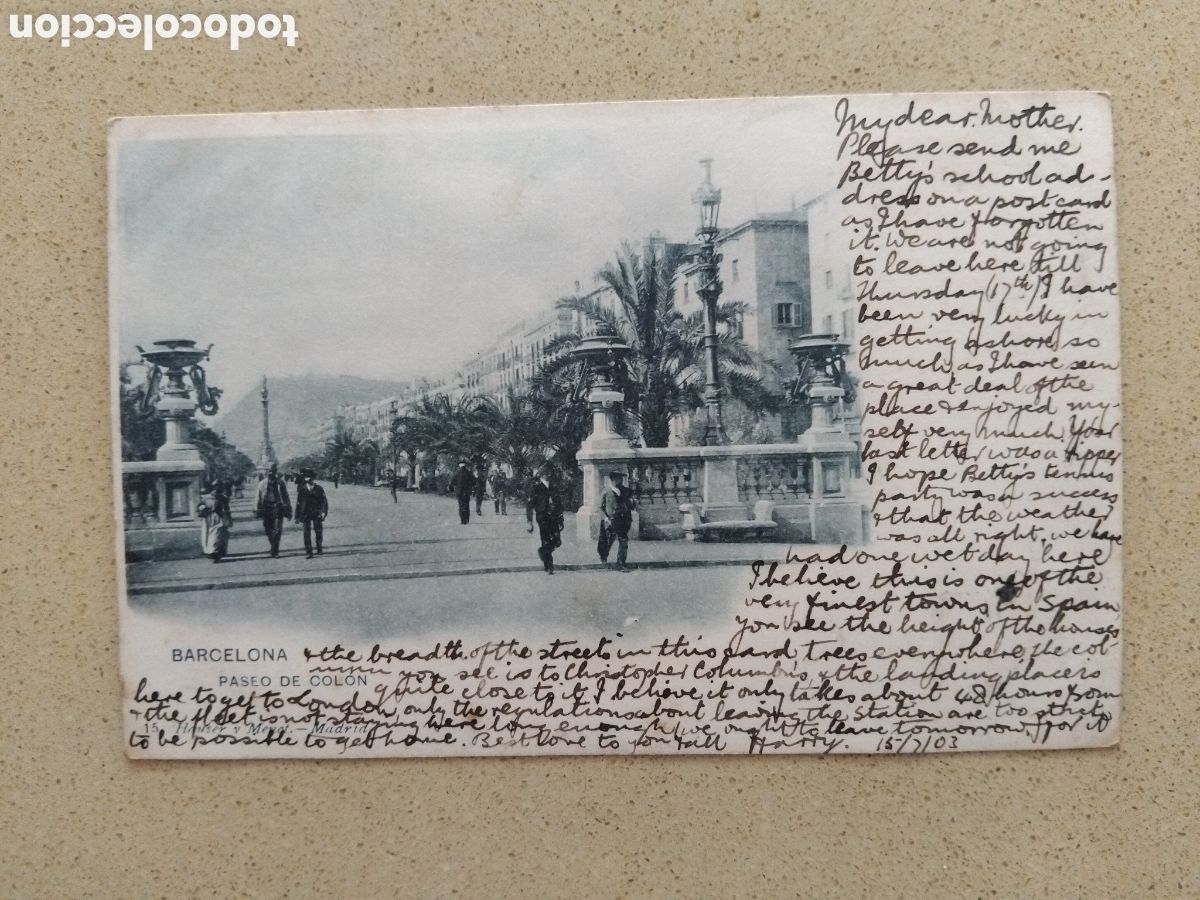 todocoleccion
My dear Mother.
Please send me
Betty's school ad-
dress on a post card
as I have forgotten
it. We are not going
to leave here till
Thursday (17th) I have
been very lucky in
getting ashore so
much, as I have seen
a great deal of the
place & enjoyed my-
self very much. Your
last letter was a ripper
I hope Betty's tennis
party was a success
& that the weather
was all right, we have
had one wet day here
I believe this is one of the
very finest towns in Spain
You see the height of the houses
& the breadth of the streets in this card trees everywhere, the col-
umn you see is to Christopher Columbus, & the landing place is
quite close to it, I believe it only takes about 48 hours from
here to get to London, only the regulations about leaving the Station are too strict
& the fleet is not staying here long enough, we ought to leave tomorrow, for it
to be possible to get home. Best love to you all Harry. 15/7/03
BARCELONA
PASEO DE COLÓN
Hauser y Menet.—Madrid